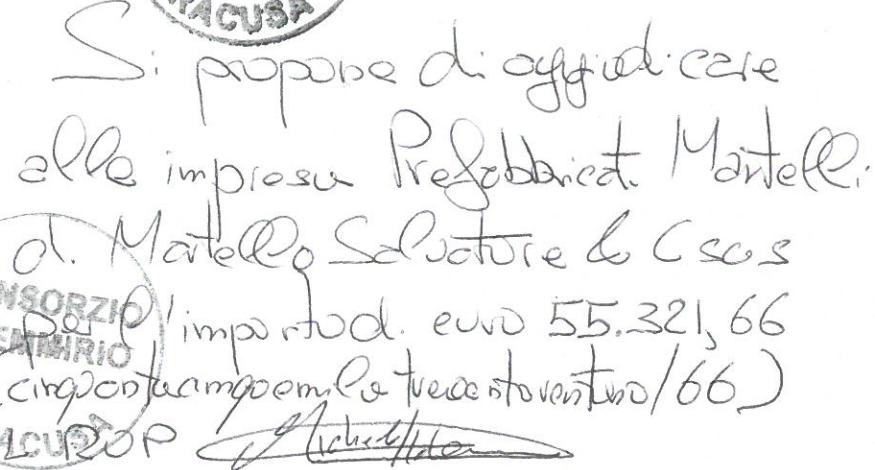 RACUSA
Si propone di aggiudicare
alla impresa Prefabbricati Martelli
di Martello Salvatore & C sas
NSORZIO
per l'importo di euro 55.321,66
EMMIRIO
cinquantacinquemila trecentoventuno/66)
ACUSA
RUP